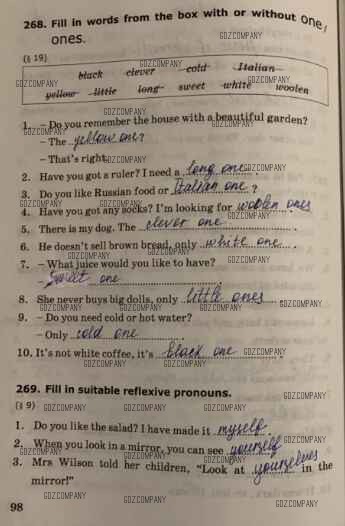 268. Fill in words from the box with or without one,
ones.
(§ 19)
black clever cold Italian
yellow little long sweet white woolen
1. – Do you remember the house with a beautiful garden?
– The yellow one?
– That's right.
2. Have you got a ruler? I need a long one.
3. Do you like Russian food or Italian one?
4. Have you got any socks? I'm looking for woolen ones.
5. There is my dog. The clever one.
6. He doesn't sell brown bread, only white one.
7. – What juice would you like to have?
– Sweet one
8. She never buys big dolls, only little ones.
9. – Do you need cold or hot water?
– Only cold one
10. It's not white coffee, it's black one.
269. Fill in suitable reflexive pronouns.
(§ 9)
1. Do you like the salad? I have made it myself.
2. When you look in a mirror, you can see yourself.
3. Mrs Wilson told her children, "Look at yourselves in the
mirror!"
98
GDZCOMPANY